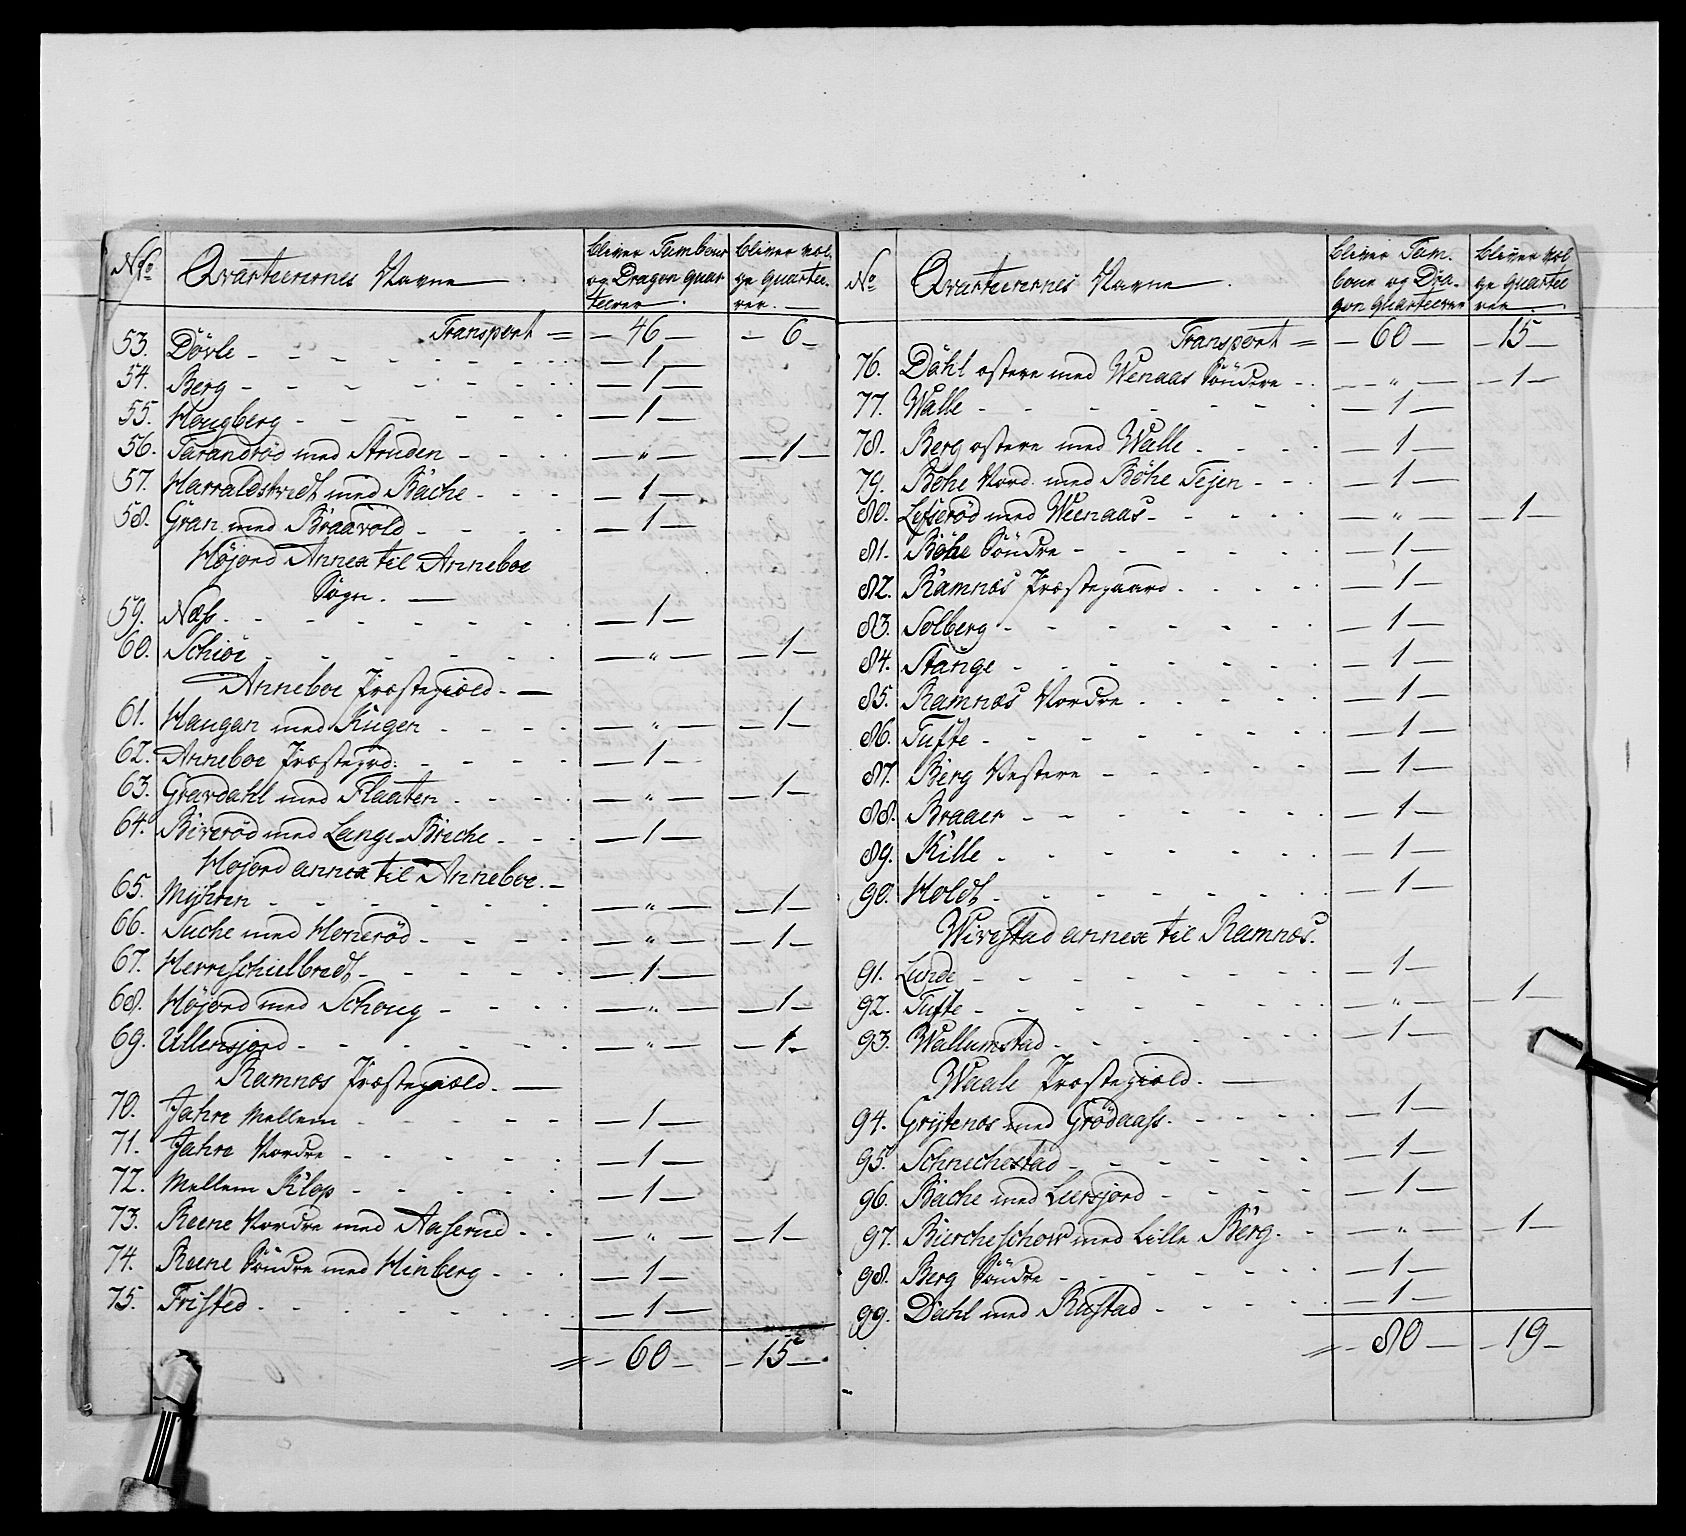 No Qvarteerernes Navne bliver Tambour og Dragon Quarteerer. bliver Følge Quarteerer.
Transport = 46 6
53. Dövle 1
54. Berg 1
55. Hougberg 1
56. Tarandröd med Aruden " 1
57. Harraldstvedt med Bache 1
58. Gran med Braavold 1
Höjord Annex til Anneboe
Sogn.
59. Næss 1
60. Schioe " 1
Anneboe Præstegiæld.
61. Haugan med Rugen " 1
62. Anneboe Præstegrd: 1
63. Gravdahl med Flaaten " 1
64. Biveröd med Lange Breche 1
Hojord annex til Anneboe.
65. Myhren " 1
66. Suche med Honeröd " 1
67. Herreschielbredt 1
68. Höjord med Schoug " 1
69. Ullensjord " 1
Ramnæs Præstegiæld.
70. Jahre Mellem 1
71. Jahre Nordre 1
72. Mellem Klop 1
73. Reene Nordre med Aaserud " 1
74. Reene Söndre med Hinberg 1
75. Fristed 1
= 60 15
No Qvarteerernes Navne bliver Tambour og Dragon Quarteerer bliver Følge Quarteerer
Transport = 60 15
76. Dahl østere med Wenaas Söndre " 1
77. Walle 1
78. Berg østere med Walle 1
79. Bøhe Nord. med Bøhe Tejen 1
80. Lefseröd med Weenaas " 1
81. Bøhe Söndre 1
82. Ramnæs Præstegaard 1
83. Solberg 1
84. Stange 1
85. Ramnæs Nordre 1
86. Tufte 1
87. Berg Vestere 1
88. Braaer 1
89. Kille 1
90. Holdt 1
Wivestad annex til Ramnæs.
91. Lunde 1
92. Tufte " 1
93. Wallumstad 1
Waale Præstegiæld.
94. Grytenæs med Grödaass 1
95. Schnechestad 1
96. Bache med Leersjord 1
97. Biercheschow med Lille Berg " 1
98. Berg Söndre 1
99. Dahl med Rustad 1
= 80 19